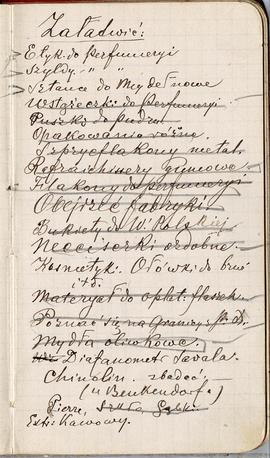 Załadwić:
Etyk. do perfumeryi
Szyldy „ „
Sztance do Mydeł nowe
Wstążeczki do perfumeryi
Puszki do pudru
Opakowania różne
Szprycflakony metal.
Refraichinery Gumowe
Flakony do perfumeryi
Obejrzeć fabryki
Bukiety do W. Polskiej
Neceserki ozdobne
Kosmetyk. Ołówki do brwi
i t d.
Materyał do oplat. flaszek
Poznać się na Granicy
Mydła oliwkowe
Diafanometr Savala
Chinolin. zbadać
(u Benkendorfa)
Pierre,
Estr. Kawowy.